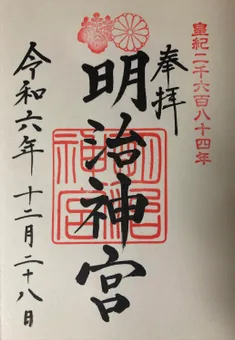 皇紀二千六百八十四年
奉拝
明治神宮
明治神宮
令和六年 十二月二十八日